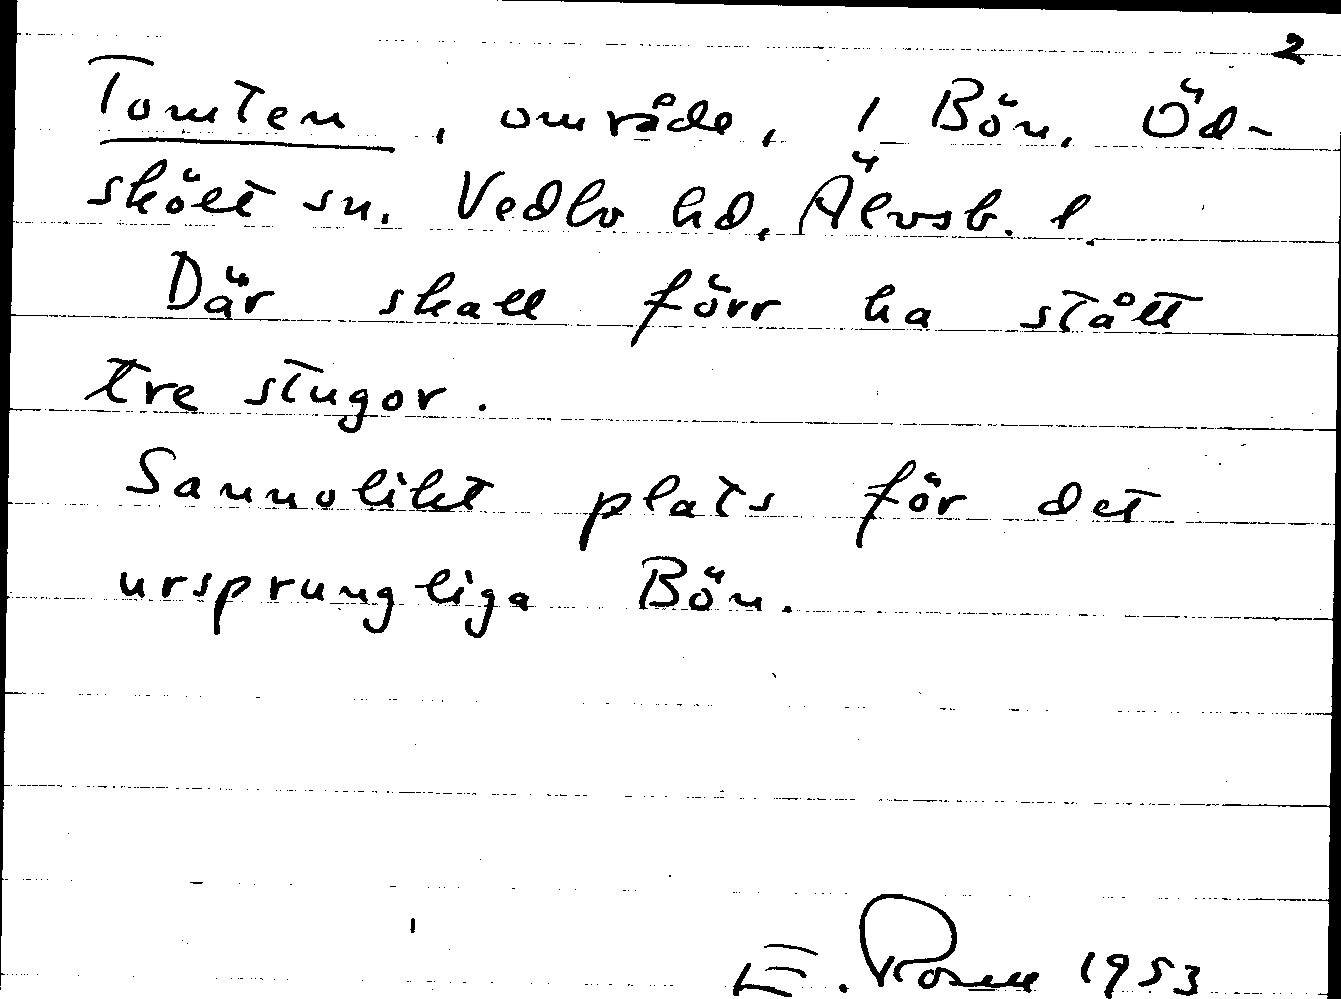 2
Tomten, område, 1 Bön, Öd-
skölt sn. Vedbo hd, Älvsb. l.
Där skall förr ha stått
tre stugor.
Sannolikt plats för det
ursprungliga Bön.
E. Rosell 1953